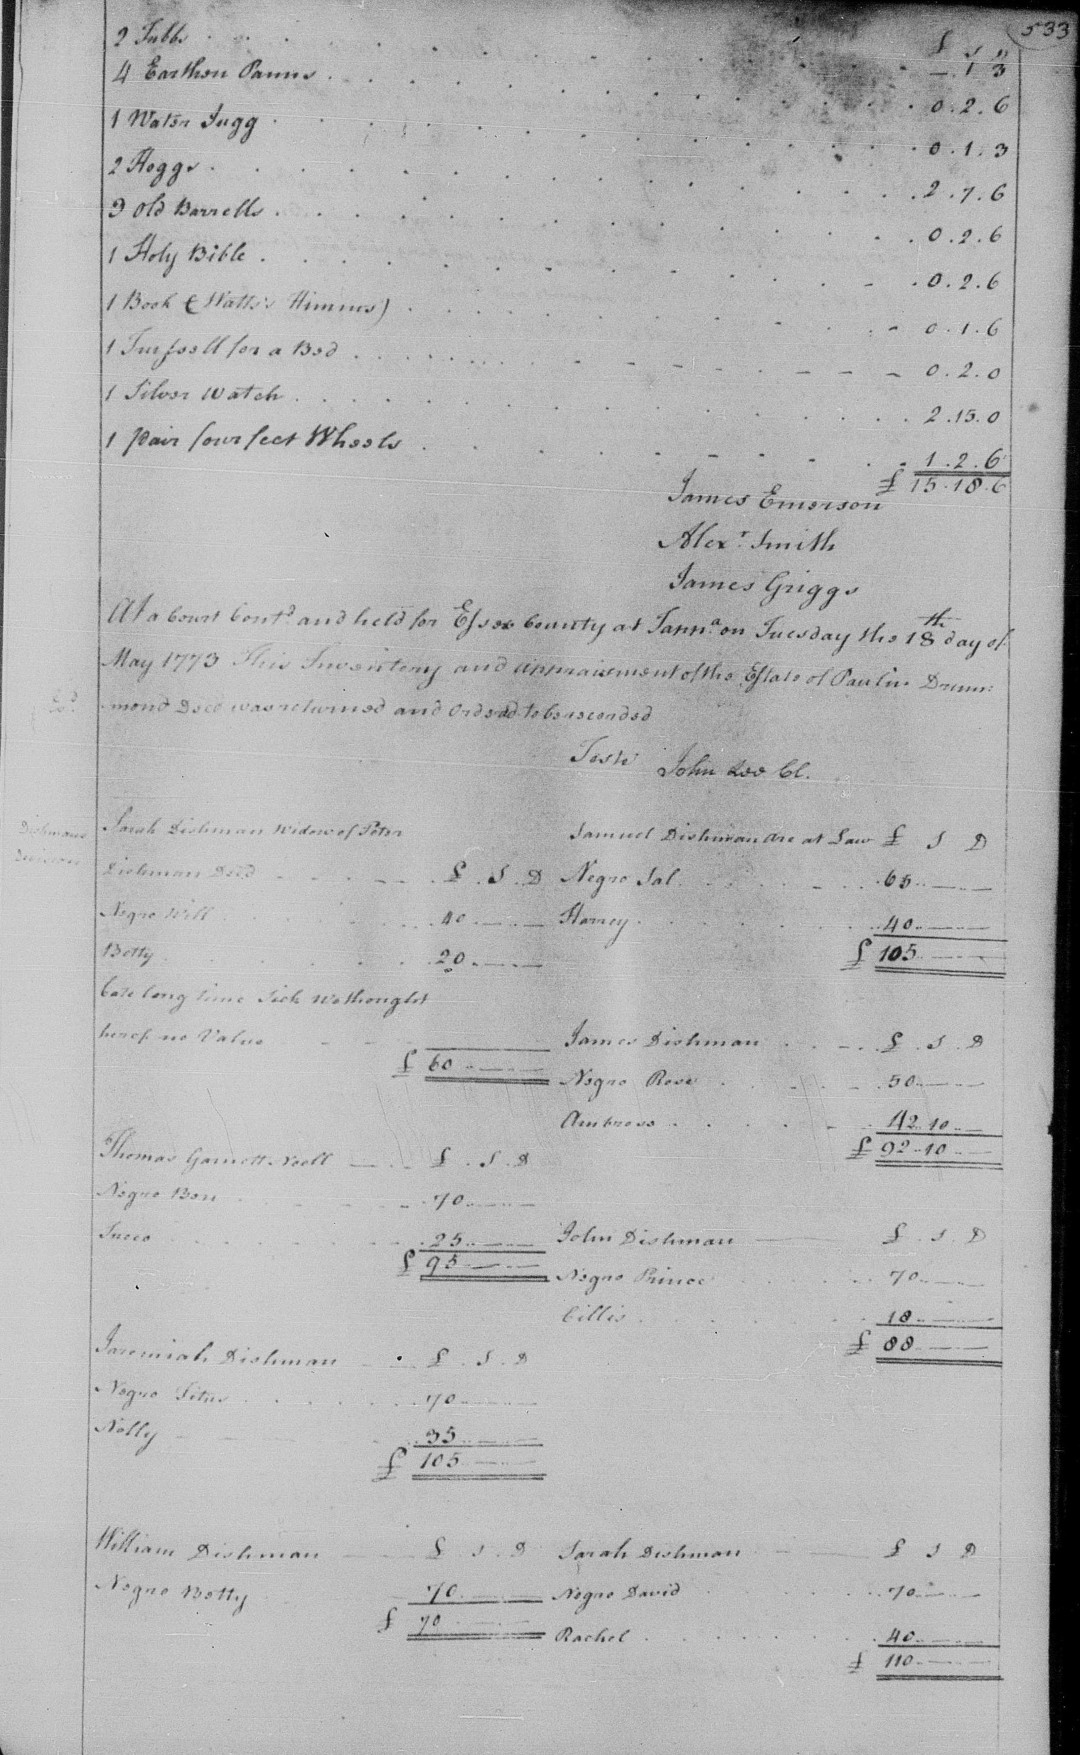 533
£ s D
2 Tubbs - 1 3
4 Earthen Panns 0.2.6
1 Water Jugg 0.1.3
2 Hoggs 2.7.6
9 Old Barrells 0.2.6
1 Holy Bible 0.2.6
1 Book (Watts's Himms) 0.1.6
1 for a Bed 0.2.0
1 Silver Watch 2.15.0
1 pair four feet Wheels 1.2.6
£ 15.18.6
James Emerson
Alexr. Smith
James Griggs
At a Court Contd. and held for Essex County at Tappa. on Tuesday the 18th day of
May 1773 This Inventory and appraisement of the Estate of Paulin Drum=
mond Deced was returned and Ordered to be recorded
Teste John Lee Cl.
Dishmans
Division
Sarah Dishman Widow of Peter
Dishman Decd £ . S . D
Negro Will 40
Betty 20
long time Sick we thought
no Value
£ 60
Samuel Dishman are at Law £ S D
Negro Sal 65
Harrey 40
£ 105
James Dishman £ . S . D
Negro Rose 50
Ambross 42 10
£ 92 10
Thomas Garnett Noell £ . S . D
Negro Ben 70
25
£ 95
John Dishman £ . S . D
Negro Prince 70
Cillis 18
£ 88
Jeremiah Dishman £ . S . D
Negro Titus 70
Nelly 35
£ 105
William Dishman £ S . D
Negro Betty 70
£ 70
Sarah Dishman £ S D
Negro David 70
Rachel 40
£ 110